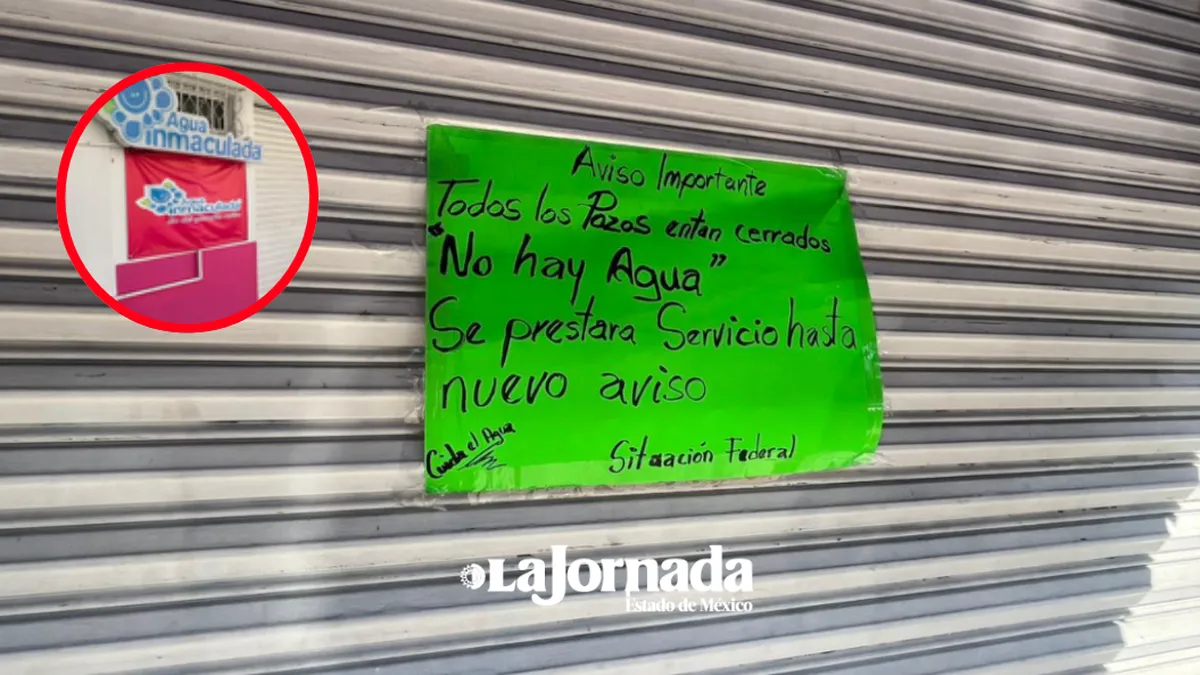 Agua
inmaculada
Agua
inmaculada
Aviso Importante
Todos los Pozos entan cerrados
"No hay Agua"
Se prestara Servicio hasta
nuevo aviso
Cuida el Agua
Situación Federal
La Jornada
Estado de México